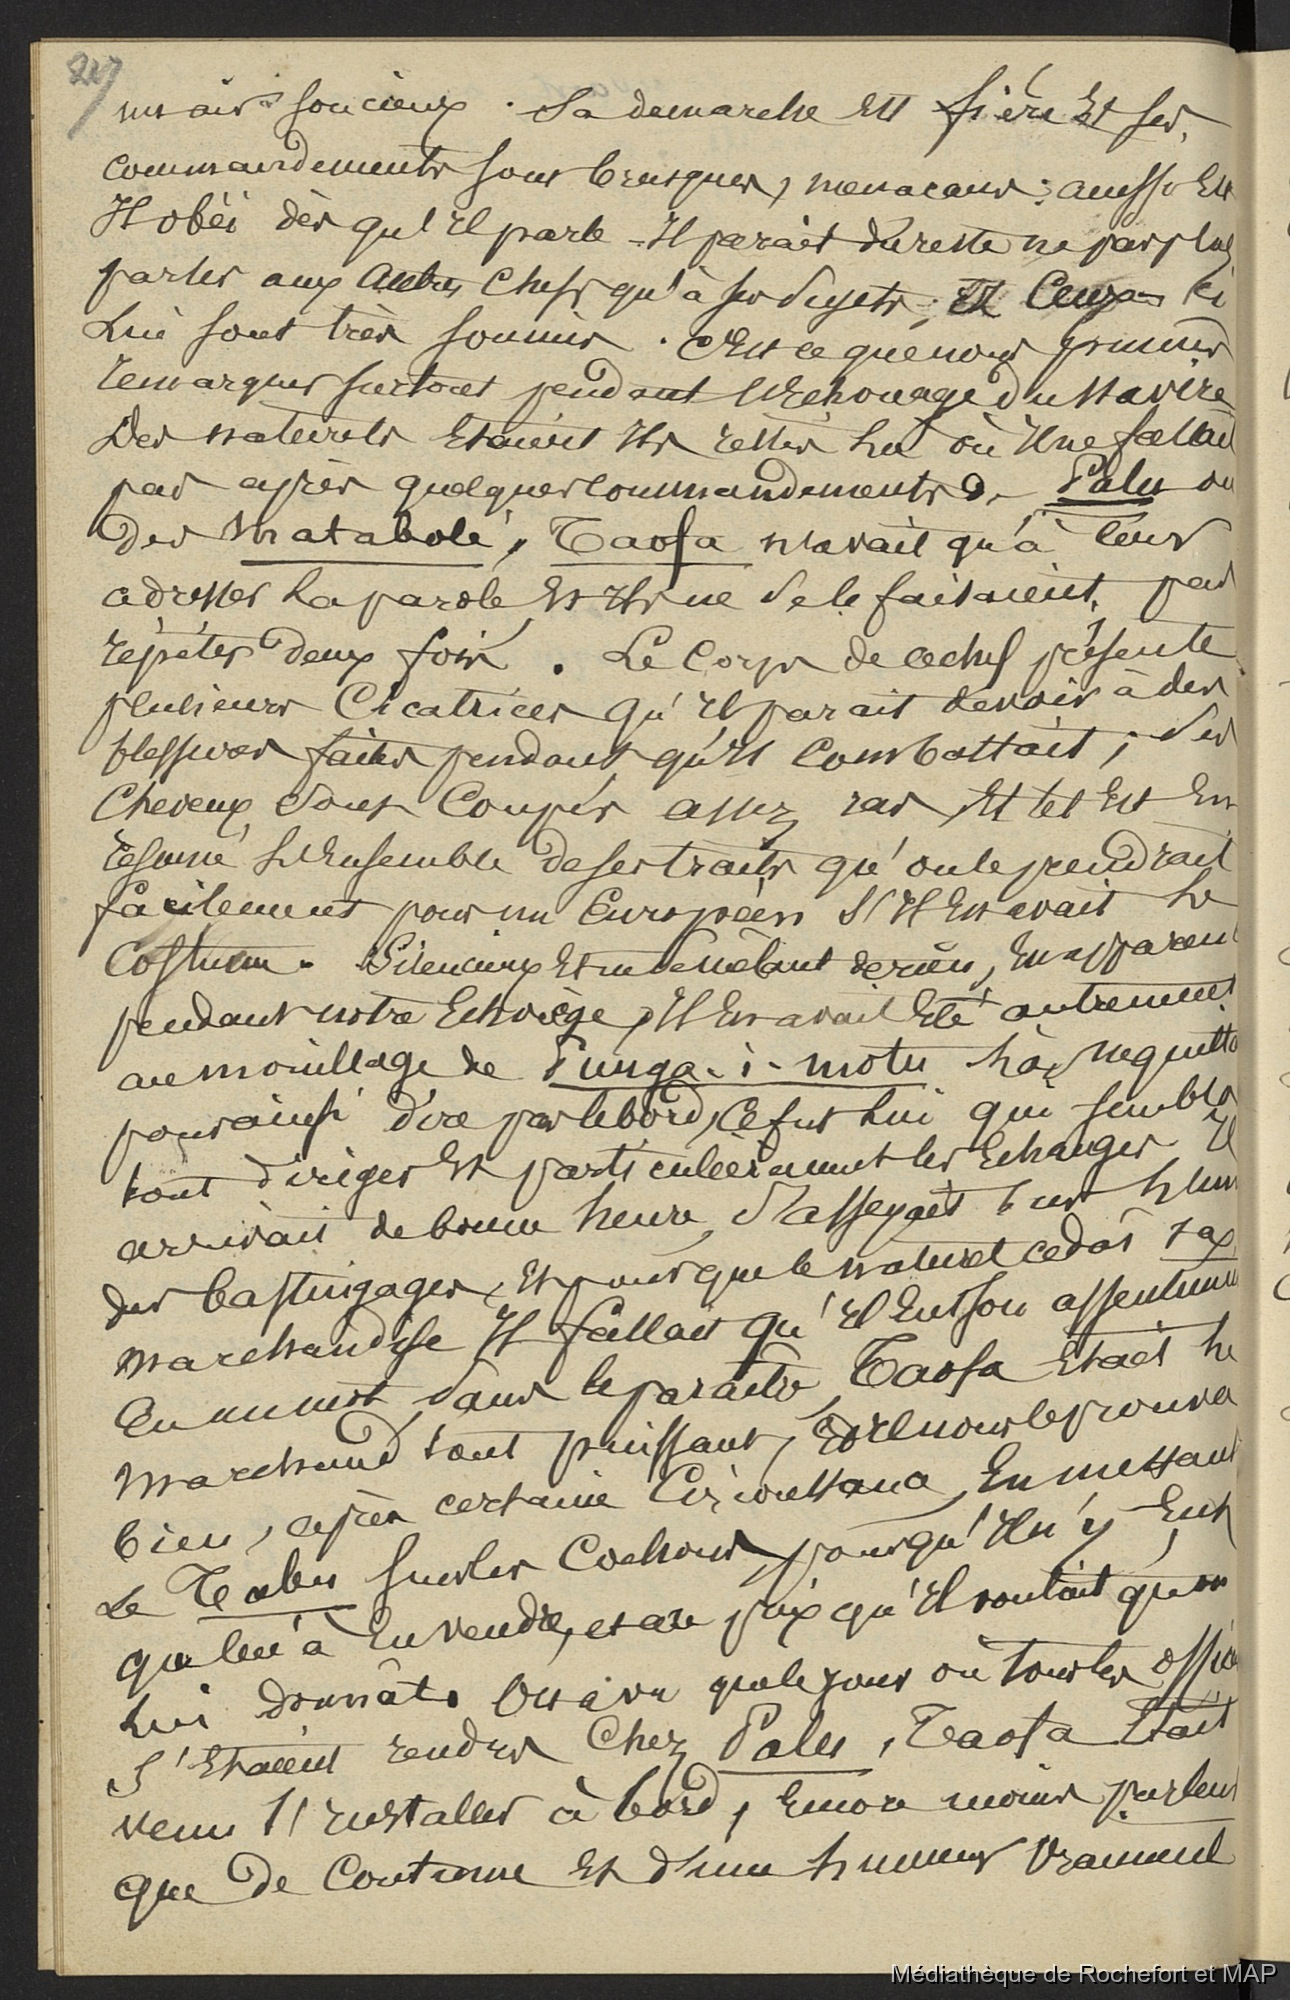 247
un air soucieux. Sa demarche est fière et ses
commandements sont brusques, menacans; aussi est
Il obéi dès qu'il parle - Il parait dureste ne pas plus
parler aux autres Chefs qu'à ses Sujets, et Ceux-ci
Lui sont très soumis. C'est ce que nous pumes
remarquer surtout pendant l'Echouage du Navire
Des naturels Etaient Ils restés là où Il ne fallait
pas après quelques commandements de Palu ou
des Matabolé, Taofa n'avait qu'à leur
adresser La parole, Et Ils ne se le faisaient pas
répéter deux fois. Le Corps de ce chef présente
plusieurs Cicatrices qu'il parait devoir à des
blessures faites pendant qu'Il Combattait; ses
Cheveux sont Coupés assez ras, Et tel Est En
résumé L'Ensemble de ses traits qu'on le prendrait
facilement pour un Européen S'Il En avait Le
Costume. Silencieux Et ne se mêlant de rien, En apparence
pendant notre Echouage, Il En avait Eté autrement
au mouillage de Punga-i-motu Là, ne quittant
pour ainsi dire pas le bord, Ce fut Lui qui sembla
tout diriger Et particulièrement les Echanges. Il
arrivait de bonne heure, S'asseyait sur L'un
des bastingages, Et pour que le naturel cedât sa
marchandise Il fallait qu'Il Eut son assentiment
En un mot, sans le paraitre, Taofa Etait Le
Marchand tout puissant, Et Il nous le prouva
bien, après certaine Circonstance, En mettant
Le Tabu sur les Cochons, pour qu'Il n'y Eut
que lui à En vendre, et au prix qu'Il voulait qu'on
Lui donnât. On a vu que le jour où tous les offic
S'Etaient rendus Chez Palu, Taofa Etait
venu S'Installer à bord, Encore moins parleur
que de Coutume Et d'une humeur vraiment
Médiathèque de Rochefort et MAP